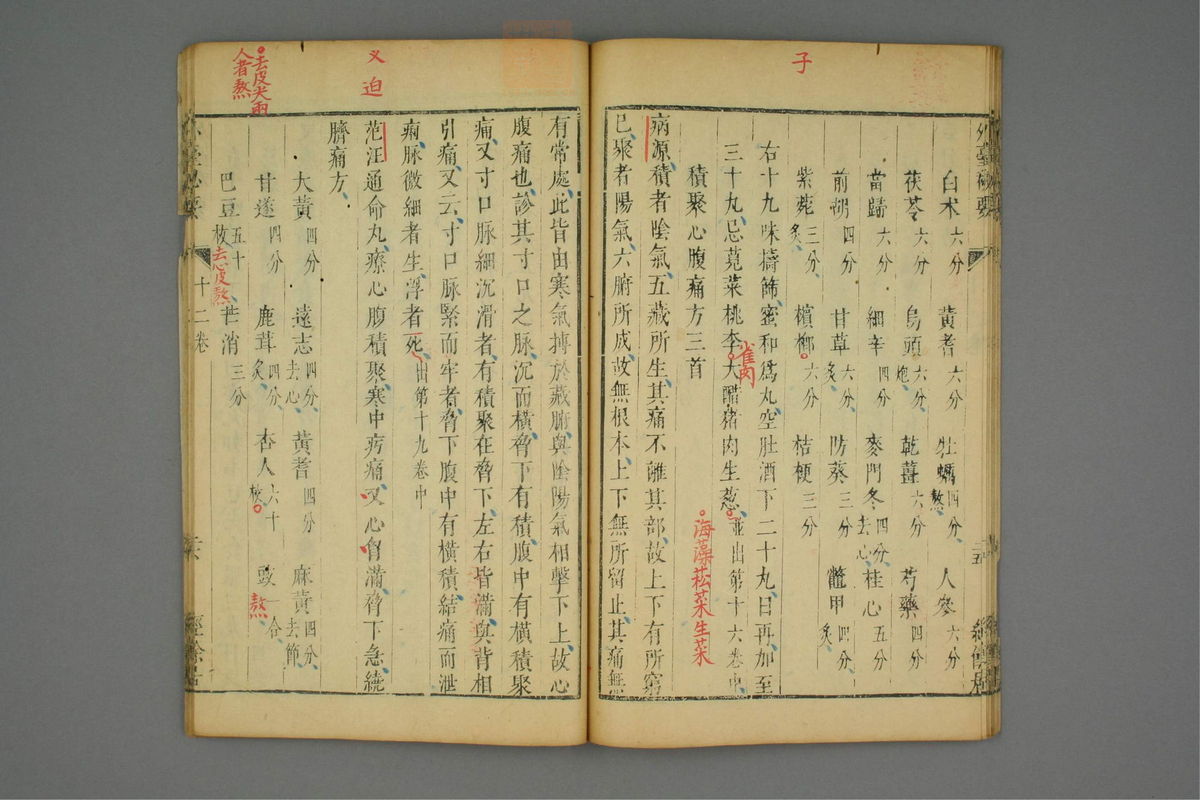 子
外臺秘要
白术六分 黃耆六分 牡蠣四分熬 人參六分
茯苓六分 烏頭六分炮 乾薑六分 芍藥四分
當歸六分 細辛四分 麥門冬四分去心 桂心五分
前胡四分 甘草六分炙 防葵三分 鱉甲四分炙
紫菀三分炙 檳榔六分 桔梗三分
右十九味擣篩蜜和爲丸空肚酒下二十丸日再加至
三十丸忌莧菜桃李雀肉大醋猪肉生葱並出第十六卷中
海藻菘菜生菜
積聚心腹痛方三首
病源積者陰氣五藏所生其痛不離其部故上下有所窮
已聚者陽氣六腑所成故無根本上下無所留止其痛無
有常處此皆由寒氣搏於藏腑與陰陽氣相擊下上故心
腹痛也診其寸口之脉沉而橫脅下有積腹中有橫積聚
痛又寸口脉細沉滑者有積聚在脅下左右皆滿與背相
引痛又云寸口脉緊而牢者脅下腹中有橫積結痛而泄
痢脉微細者生浮者死出第十九卷中
范汪通命丸療心腹積聚寒中疞痛又心胷滿脅下急繞
臍痛方
迫
大黃四分 遠志四分去心 黃耆四分 麻黃四分去節
甘遂四分 鹿茸四分炙 杏人六十枚 豉一合熬
去皮尖兩
人者熬
巴豆五十枚去心皮熬 芒消三分
十二卷
經餘居